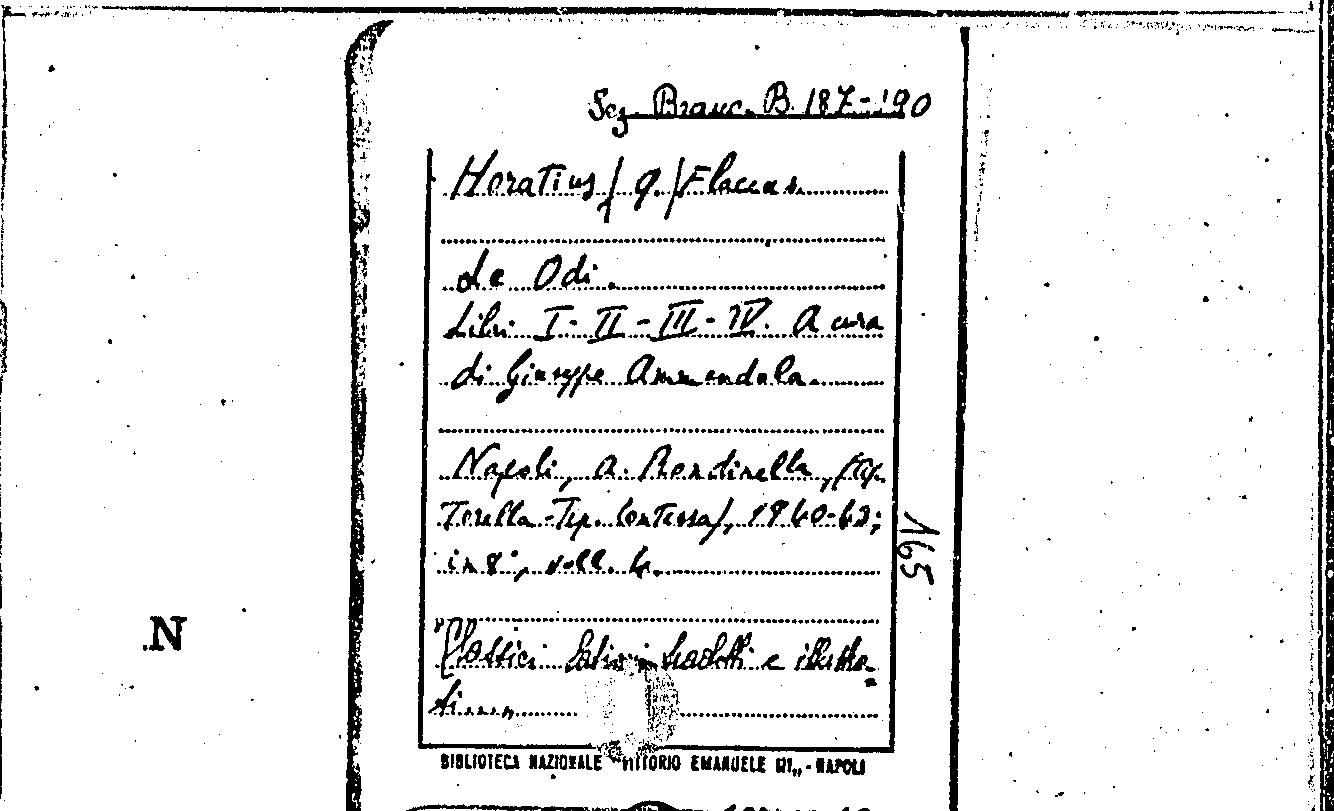 Sez. Branc. B. 187-190
Horatius / Q. / Flaccus.
Le Odi.
Libri I - II - III - IV. A cura
di Giuseppe Ammendola.
Napoli, A. Rondinella, (Tip.
Torella-Tip. Contessa), 1940-42;
in 8°, voll. 4.
165
"Classici latini tradotti e illustra=
ti"
N
BIBLIOTECA NAZIONALE "VITTORIO EMANUELE III" - NAPOLI